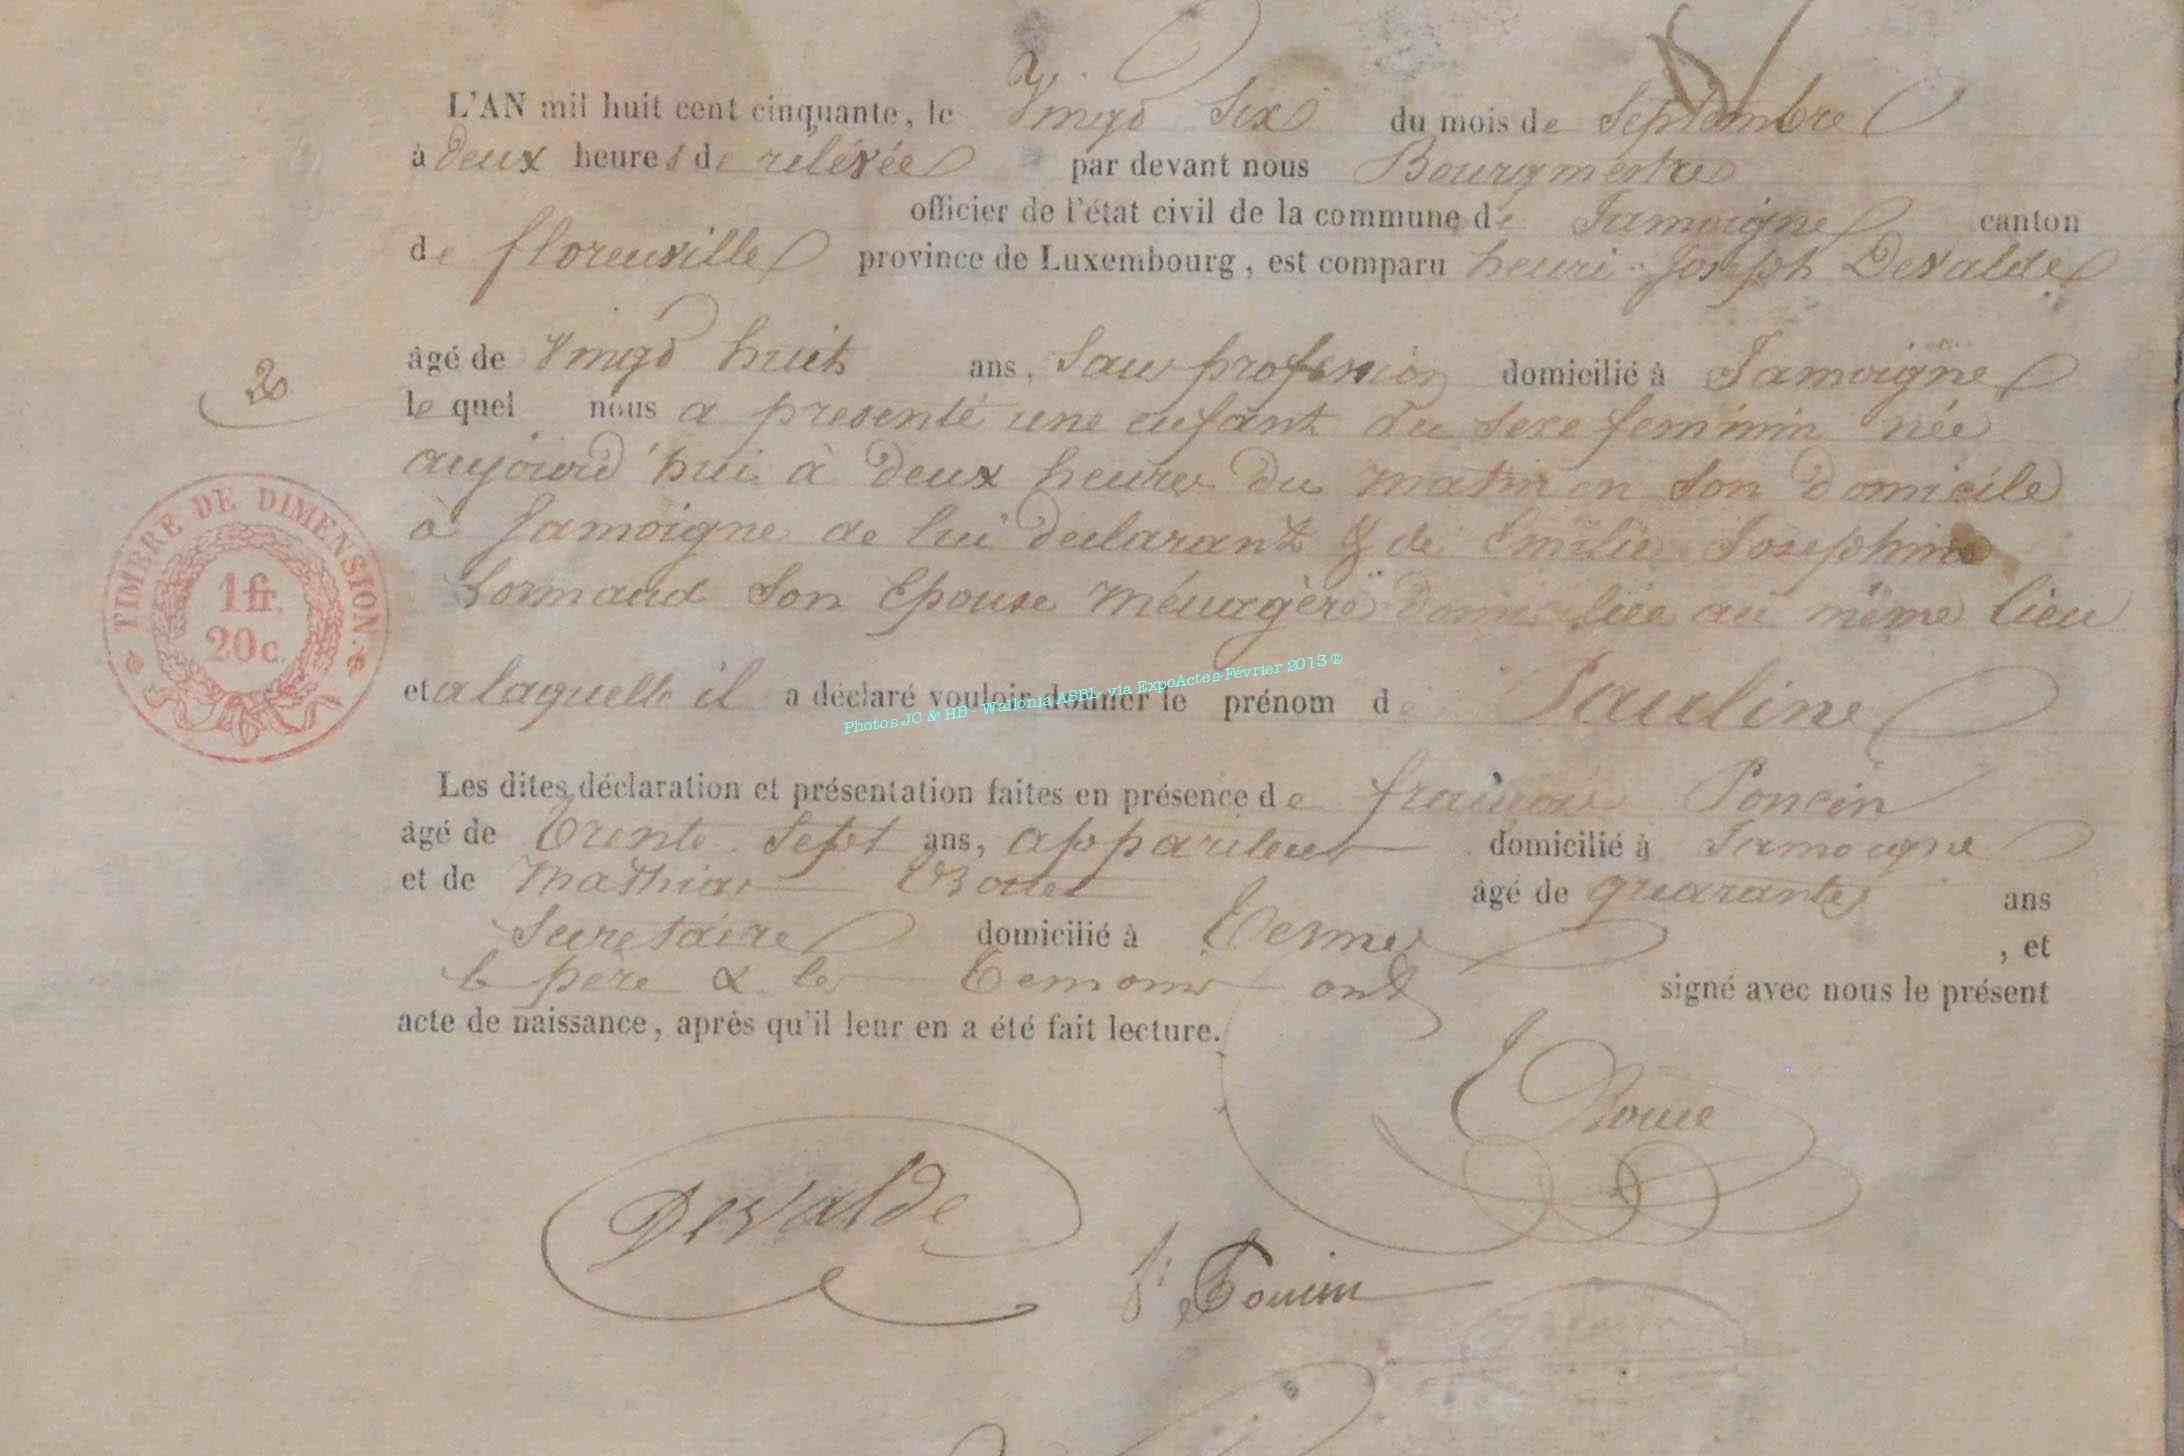 L'AN mil huit cent cinquante, le vingt six du mois de Septembre
à deux heures de relévée par devant nous Bourgmestre
officier de l'état civil de la commune de Jamoigne canton
de florenville province de Luxembourg, est comparu henri-Joseph Devalde
âgé de vingt huit ans, Sans profession domicilié à Jamoigne
2
le quel nous a presenté une enfant du sexe feminin née
aujourd'hui à deux heures du matin en son domicile
à Jamoigne de lui déclarant & de Emilie Josephine
Lormand son Epouse ménagère domiciliée au même lieu
et a laquelle il a déclaré vouloir donner le prénom de Pauline
TIMBRE DE DIMENSION.
1 fr.
20 c.
Photos JC & HB - Wallonia ASBL - via ExpoActes Février 2013 ®
Les dites déclaration et présentation faites en présence de françois Poncin
âgé de Trente Sept ans, appariteur domicilié à Jamoigne
et de Mathias âgé de quarante ans
Secretaire domicilié à Termes, et
le père & les Temoins ont signé avec nous le présent
acte de naissance, après qu'il leur en a été fait lecture.
Devalde
Poncin